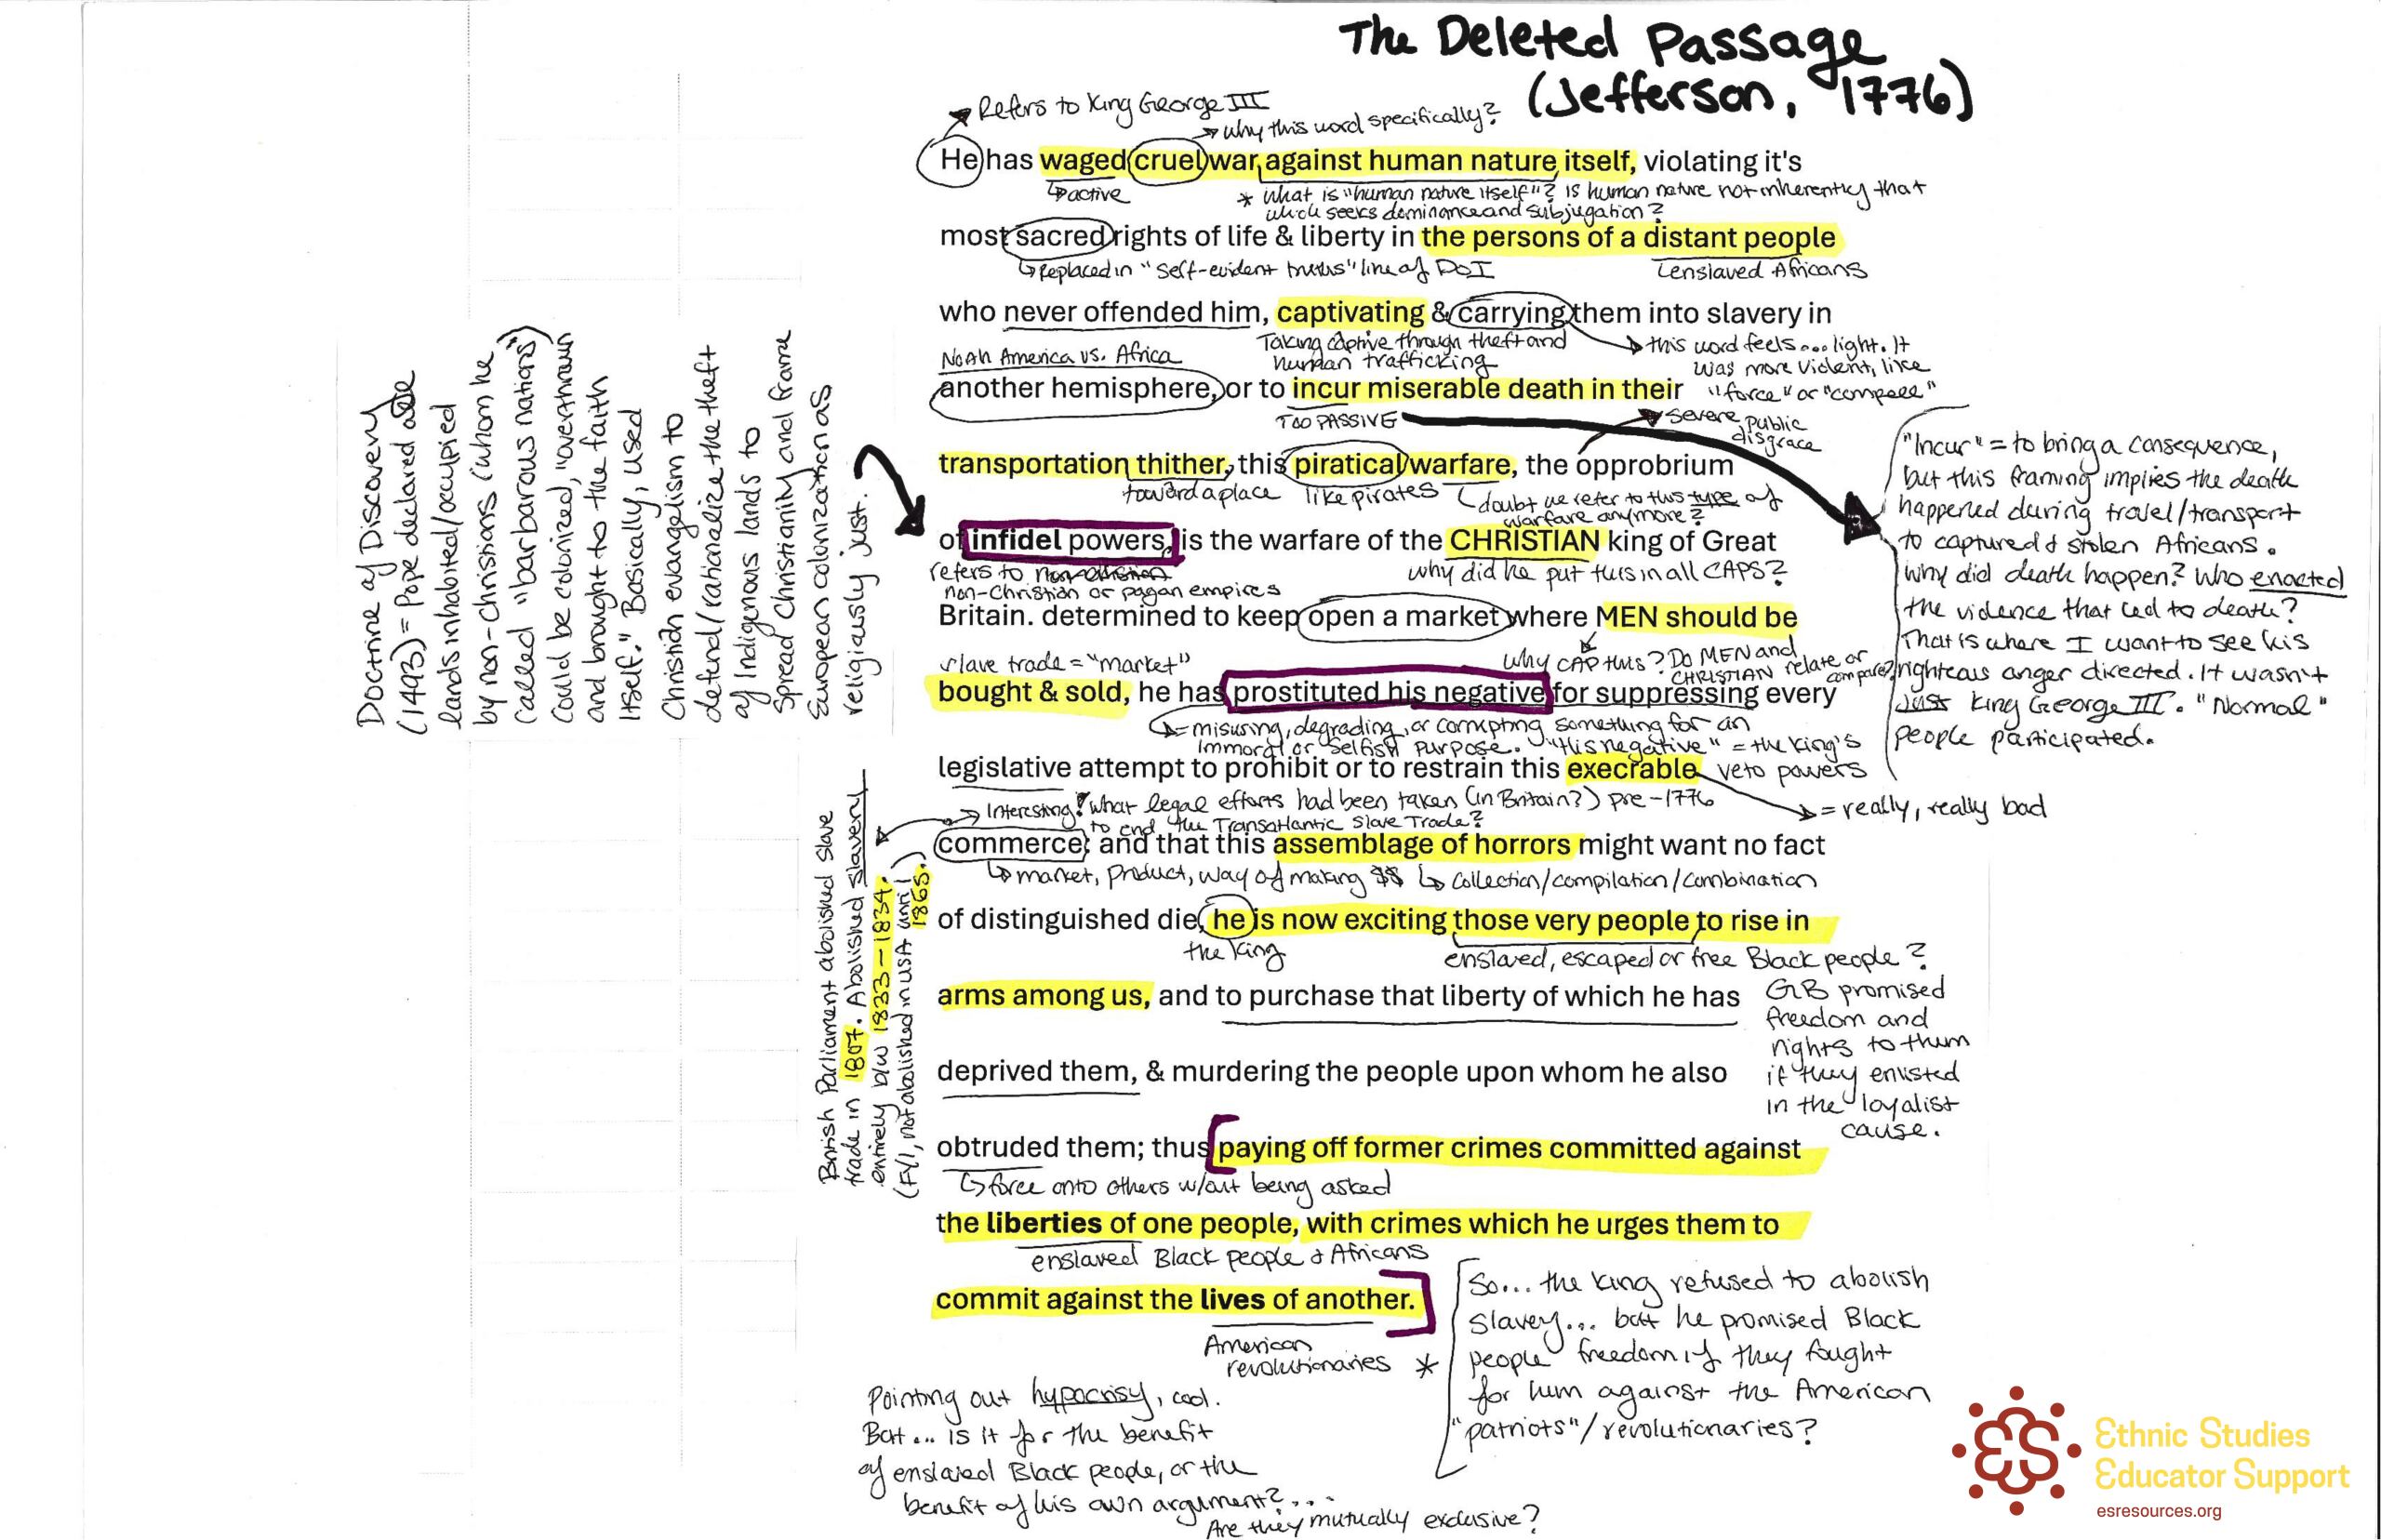 The Deleted Passage
(Jefferson, 1776)
Refers to King George III
why this word specifically?
He has waged cruel war against human nature itself, violating it's
active
* what is "human nature itself"? Is human nature not inherently that
which seeks dominance and subjugation?
most sacred rights of life & liberty in the persons of a distant people
Replaced in "self-evident truths" line of DoI
enslaved Africans
who never offended him, captivating & carrying them into slavery in
North America vs. Africa
Taking captive through theft and
human trafficking
this word feels... light. It
was more violent, like
"force" or "compell"
another hemisphere, or to incur miserable death in their
TOO PASSIVE
severe public
disgrace
transportation thither, this piratical warfare, the opprobrium
toward a place
like pirates
doubt we refer to this type of
warfare anymore?
"Incur" = to bring a consequence,
but this framing implies the death
happened during travel/transport
to captured & stolen Africans.
Why did death happen? Who enacted
the violence that led to death?
That is where I want to see his
righteous anger directed. It wasn't
just King George III. "Normal"
people participated.
of infidel powers, is the warfare of the CHRISTIAN king of Great
refers to
non-Christian or pagan empires
why did he put this in all CAPS?
Doctrine of Discovery
(1493) = Pope declared
lands inhabited/occupied
by non-christians (whom he
called "barbarous nations")
could be colonized, "overthrown
and brought to the faith
itself." Basically, used
Christian evangelism to
defend/rationalize the theft
of Indigenous lands to
spread Christianity and frame
European colonization as
religiously just.
Britain. determined to keep open a market where MEN should be
slave trade = "market"
why CAP this? Do MEN and
CHRISTIAN relate or
compare?
bought & sold, he has prostituted his negative for suppressing every
= misusing, degrading, or corrupting something for an
immoral or selfish purpose. "His negative" = the king's
veto powers
legislative attempt to prohibit or to restrain this execrable
Interesting! What legal efforts had been taken (in Britain?) pre-1776
to end the Transatlantic Slave Trade?
= really, really bad
British Parliament abolished slave
trade in 1807. Abolished slavery
entirely b/w 1833-1834.
(FYI, not abolished in USA until
1865.)
commerce: and that this assemblage of horrors might want no fact
market, product, way of making $$
collection/compilation/combination
of distinguished die, he is now exciting those very people to rise in
the king
enslaved, escaped or free Black people?
GB promised
freedom and
rights to them
if they enlisted
in the loyalist
cause.
arms among us, and to purchase that liberty of which he has
deprived them, & murdering the people upon whom he also
obtruded them; thus paying off former crimes committed against
force onto others w/out being asked
the liberties of one people, with crimes which he urges them to
enslaved Black people & Africans
commit against the lives of another.
American
revolutionaries
* So... the king refused to abolish
slavery... but he promised Black
people freedom if they fought
for him against the American
"patriots"/revolutionaries?
Pointing out hypocrisy, cool.
But... is it for the benefit
of enslaved Black people, or the
benefit of his own argument?...
Are they mutually exclusive?
ES
Ethnic Studies
Educator Support
esresources.org